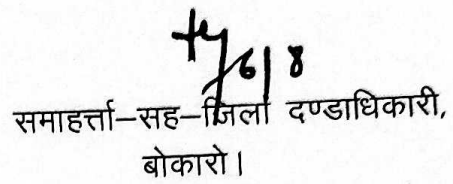 6/8
समाहर्त्ता–सह–जिला दण्डाधिकारी,
बोकारो।